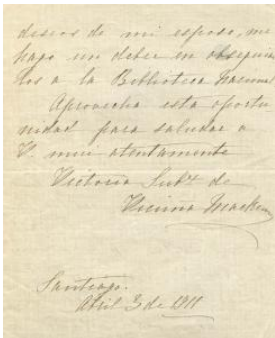 deseos de mi esposo, me
hago un deber en obsequiar
los a la Biblioteca Nacional
Aprovecho esta oportu
nidad para saludar a
V. mui atentamente
Victoria Sub.^s de
Vicuña Mackenna
Santiago.
Abril 3 de 1911